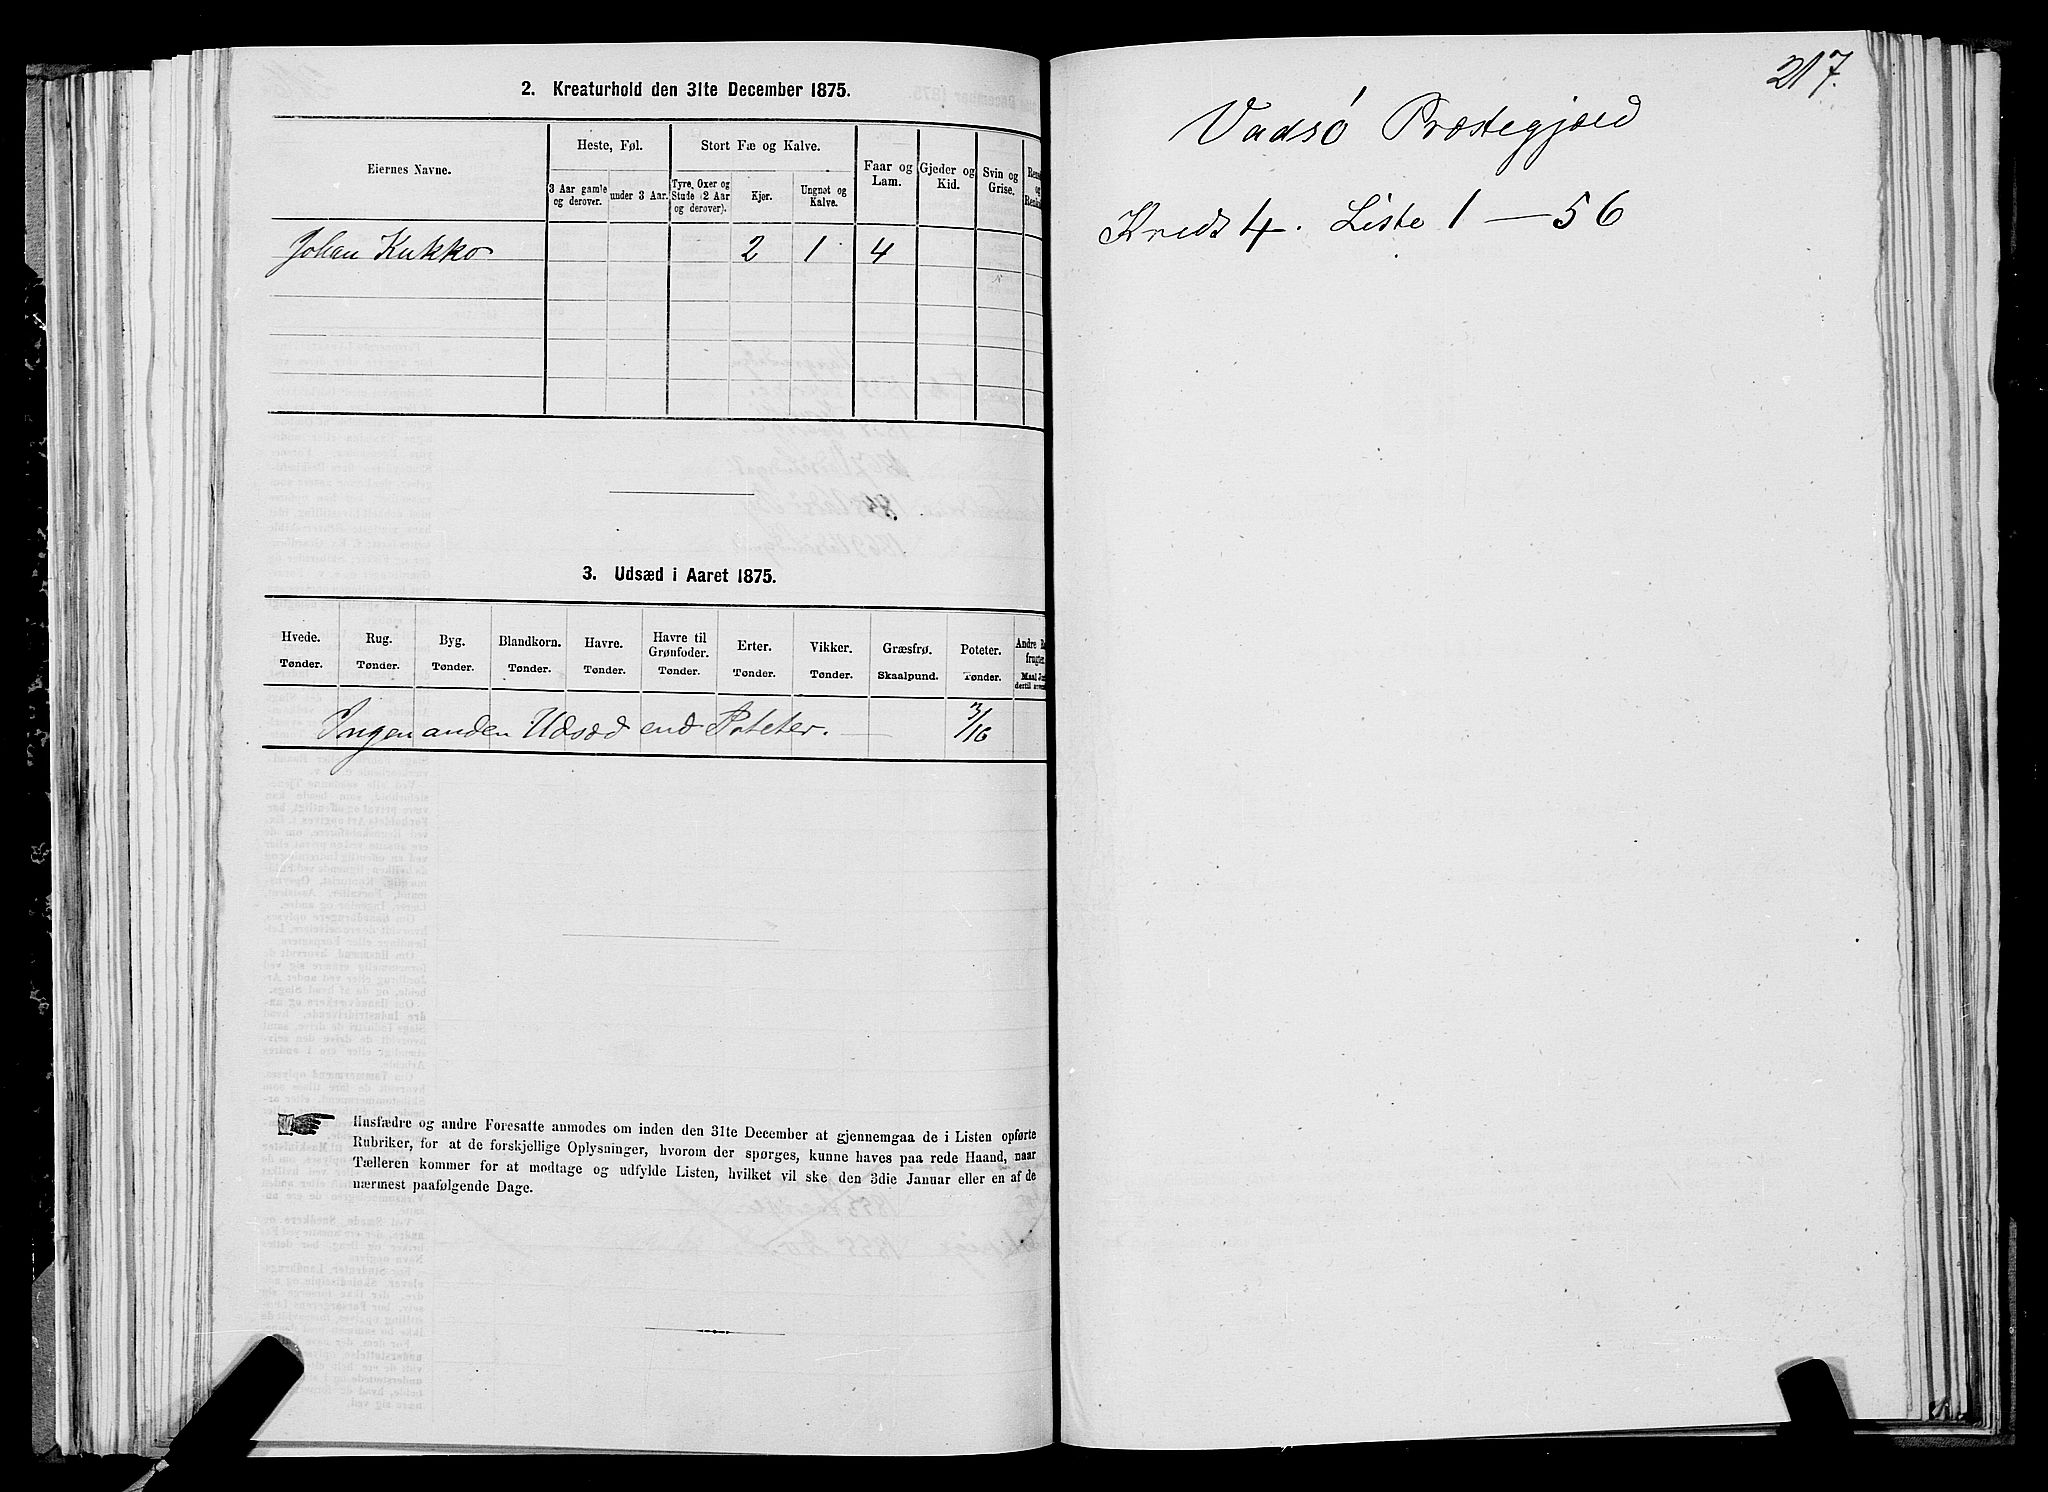 2. Kreaturhold den 31te December 1875.
Eiernes Navne.
Heste, Føl.
Stort Fæ og Kalve.
Faar og Lam.
Gjeder og Kid.
Svin og Grise.
3 Aar gamle og derover.
under 3 Aar.
Tyre, Oxer og Stude (2 Aar og derover).
Kjør.
Ungnøt og Kalve.
Johan Kukko 2 1 4
3. Udsæd i Aaret 1875.
Hvede. Rug. Byg. Blandkorn. Havre. Havre til Grønfoder. Erter. Vikker. Græsfrø. Poteter.
Tønder. Tønder. Tønder. Tønder. Tønder. Tønder. Tønder. Tønder. Skaalpund. Tønder.
Ingen anden Udsæd end Poteter. 3/16
Husfædre og andre Foresatte anmodes om inden den 31te December at gjennemgaa de i Listen opførte
Rubriker, for at de forskjellige Oplysninger, hvorom der spørges, kunne haves paa rede Haand, naar
Tælleren kommer for at modtage og udfylde Listen, hvilket vil ske den 3die Januar eller en af de
nærmest paafølgende Dage.
217.
Vadsø Præstegjæld
Kreds 4. Liste 1 — 56